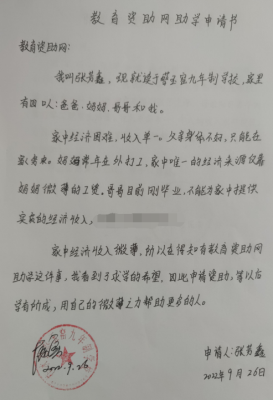 教育资助网助学申请书
教育资助网：
我叫张芳鑫，现就读于官九年制学校，家里
有四口人：爸爸、妈妈、哥哥和我。
家中经济困难，收入单一。父亲身体不好，只能在
家务农。妈妈常年在外打工，家中唯一的经济来源仅靠
妈妈微薄的工资。哥哥目前刚毕业，不能为家中提供
实质的经济收入，
家中经济收入微薄，所以在得知有教育资助网
助学这件事，我看到了求学的希望，因此申请资助，等以后
学有所成，用自己的微薄之力帮助更多的人。
申请人：张芳鑫
2022年9月26日
九年制学
2022.9.26